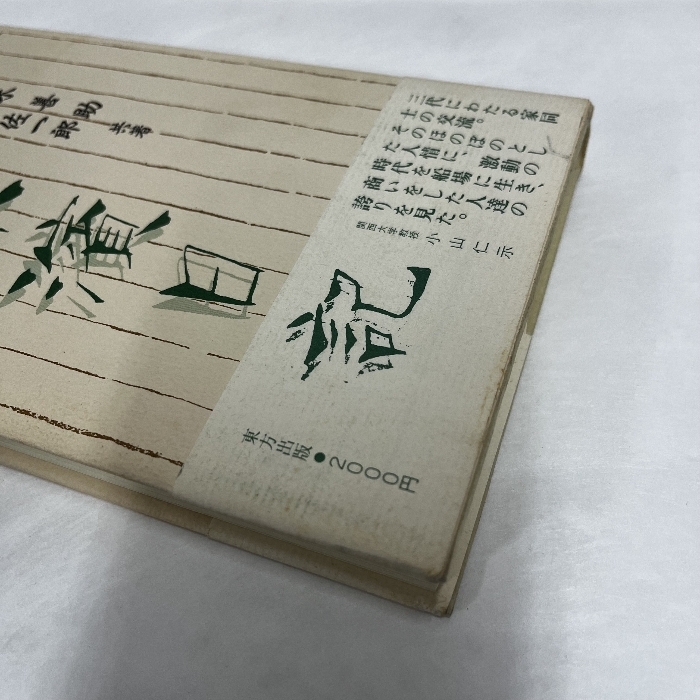 善助
佐一郎 共著
日記
三代にわたる家同
士の交流。
そのほのぼのとし
た人情に、激動の
時代を船場に生き、
商いをした人達の
誇りを見た。
関西大学教授 小山仁示
東方出版●2000円